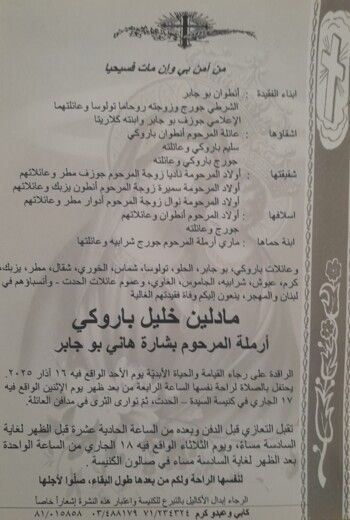 من آمن بي وإن مات فسيحيا
ابناء الفقيدة : أنطوان بو جابر
الشرطي جورج وزوجته روحاما تولوسا وعائلتهما
الإعلامي جوزف بو جابر وابنته كلاريتا
اشقاؤها : عائلة المرحوم أنطوان باروكي
سليم باروكي وعائلته
جورج باروكي وعائلته
شقيقتها : أولاد المرحومة ناديا زوجة المرحوم جوزف مطر وعائلاتهم
أولاد المرحومة سميرة زوجة المرحوم أنطون يزبك وعائلاتهم
أولاد المرحومة نوال زوجة المرحوم أدوار مطر وعائلاتهم
اسلافها : أولاد المرحوم أنطوان وعائلاتهم
جورج وعائلته
ابنة حماها : ماري أرملة المرحوم جورج شرابيه وعائلتها
وعائلات باروكي، بو جابر، الحلو، تولوسا، شماس، الخوري، شقال، مطر، يزبك،
كرم، عبوش، شرابيه، الجاموس، الغاوي، وعموم عائلات الحدث - وأنسباؤهم في
لبنان والمهجر، ينعون إليكم وفاة فقيدتهم الغالية
مادلين خليل باروكي
أرملة المرحوم بشارة هاني بو جابر
الراقدة على رجاء القيامة والحياة الأبدية يوم الأحد الواقع فيه ١٦ آذار ٢٠٢٥.
يحتفل بالصلاة لراحة نفسها الساعة الرابعة من بعد ظهر يوم الإثنين الواقع فيه
١٧ الجاري في كنيسة السيدة – الحدث، ثم توارى الثرى في مدافن العائلة.
تقبل التعازي قبل الدفن وبعده من الساعة الحادية عشرة قبل الظهر لغاية
السادسة مساءً، ويوم الثلاثاء الواقع فيه ١٨ الجاري من الساعة الواحدة
بعد الظهر لغاية السادسة مساء في صالون الكنيسة .
لنفسها الراحة ولكم من بعدها طول البقاء، صلّوا لأجلها
الرجاء إبدال الأكاليل بالتبرع للكنيسة واعتبار هذه النشرة إشعاراً خاصاً
كابي وعبدو كرم ٧١/٢٣٤٣٢٤ ٠٣/٤٨٨١٧٩ ٨١/٠١٥٨٥٨